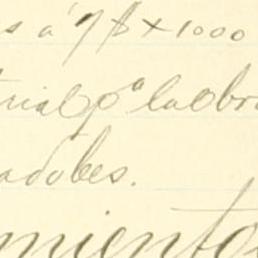 s á 7 $ × 1000
rial pª la obra
adobes.
miento